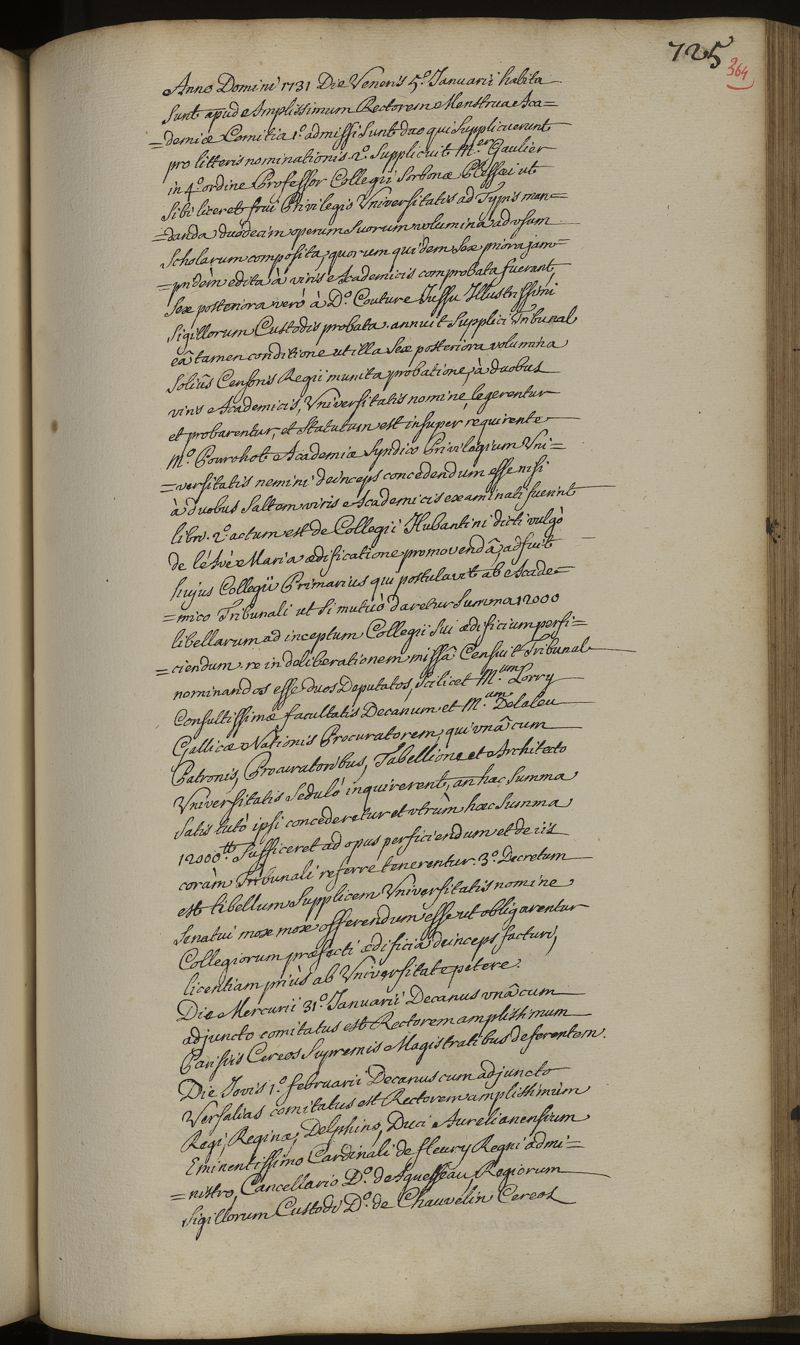 725
364
Anno Domini 1731 Die Veneris 5.º Januarii habita
Sunt apud Amplissimum Rectorem Menstrua Aca=
=demiæ Comitia 1.º admissi sunt duo qui Supplicuerunt
pro litteris nominationis 2.º Supplicuit M.er Gaulier
in 4.º ordine Professor Collegii Sorbonæ Plessæi ut
Sibi liceret frui Privilegio Universitatis ad Typis man=
=danda duodecim operum Suorum volumina ad usum
Scholarum composita, quorum quidem Sex priora jam=
=pridèm edita à viris Academicis comprobata fuerant,
Sex posteriora verò à D.º Couture Jussu Illustrissimi
Sigillorum Custodis probata. annuit Supplici Tribunal
eâ tamen conditione ut illa Sex posteriora volumina
Solius Censoris Regii munita probatione, à duobus
viris Academicis, Universitatis nomine, legerentur
et probarentur, et Statutum est insuper, requirente
M.º Pourchot Academiæ Syndico Privilegium Uni=
=versitatis nemini deinceps concedendum esse nisi
à duobus Saltem viris Academicis examinati fuerint
libri. 2.º actum est de Collegii Hubantini dicti vulgò
de l'Avé Maria ædificatione promovendâ, adfuit
hujus Collegii Primarius qui postulavit ab Acade=
=mico Tribunali ut Si mutuò daretur Summa 12000
libellarum ad inceptum Collegii Sui ædificium perfi=
=ciendum. re in deliberationem missâ Censuit Tribunal
nominandos esse duos Deputatos, Scilicet M.um Lorry
Consultissimæ facultatis Decanum et M.um Delaleu
Gallicæ Nationis Procuratorem, qui unâ cum
Patronis, Procuratoribus, Tabellione et Architecto
Universitatis Sedulò inquirerent, an hæc Summa
Satis tutò ipsi concederetur et utrùm hæc Summa
12000.tt Sufficeret ad opus perficiendum et de iis
coràm Tribunali referre tenerentur. 3.º Decretum
est libellum Supplicem Universitatis nomine
Senatui mox mox offerendum esse ut obligarentur
Collegiorum præfecti ædificia deinceps facturi,
licentiam priùs ab Universitate petere.
Die Mercurii 31.º Januarii Decanus unâ cum
adjuncto comitatus est Rectorem amplissimum
Parisiis Cereos Supremis Magistratibus deferentem.
Die Jovis 1.º februarii Decanus cum adjuncto
Versalias comitatus est Rectorem amplissimum
Regi, Reginæ, Delphino, Duci Aurelianensium
Eminentissimo Cardinali de fleury Regni admi=
=nistro, Cancellario D.º de Aguesseau, Regiorum
Sigillorum Custodi D.º de Chauvelin Cereos